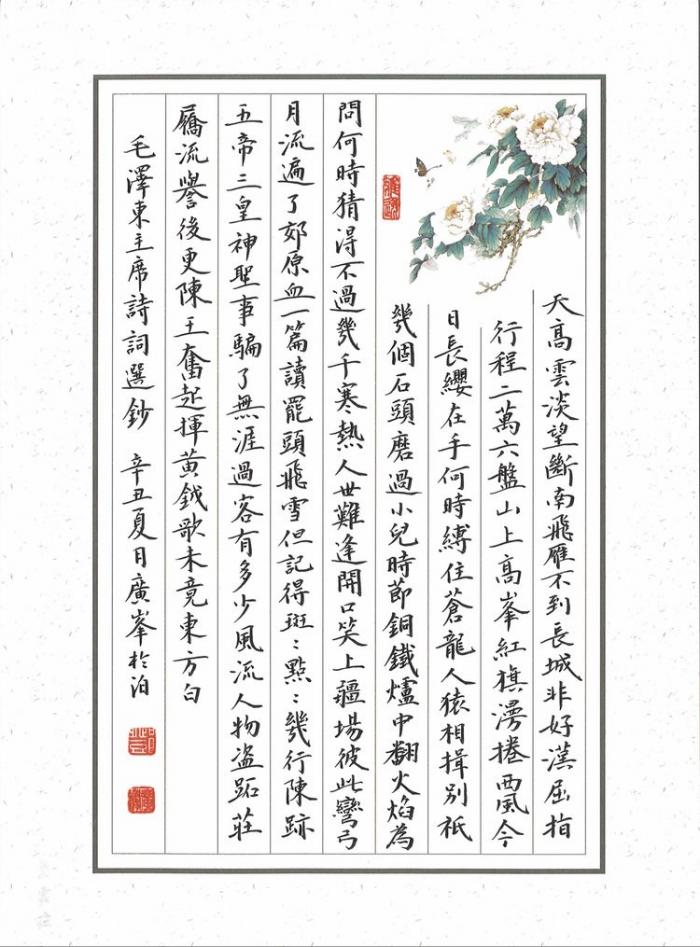 天高雲淡望斷南飛雁不到長城非好漢屈指
行程二萬六盤山上高峯紅旗漫捲西風今
日長纓在手何時縛住蒼龍人猿相揖別祇
幾個石頭磨過小兒時節銅鐵爐中翻火焰為
問何時猜得不過幾千寒熱人世難逢開口笑上疆場彼此彎弓
月流遍了郊原血一篇讀罷頭飛雪但記得斑:點:幾行陳跡
五帝三皇神聖事騙了無涯過客有多少風流人物盜跖莊
屩流譽後更陳王奮起揮黃鉞歌未竟東方白
毛澤東主席詩詞選鈔 辛丑夏月廣峯於泊